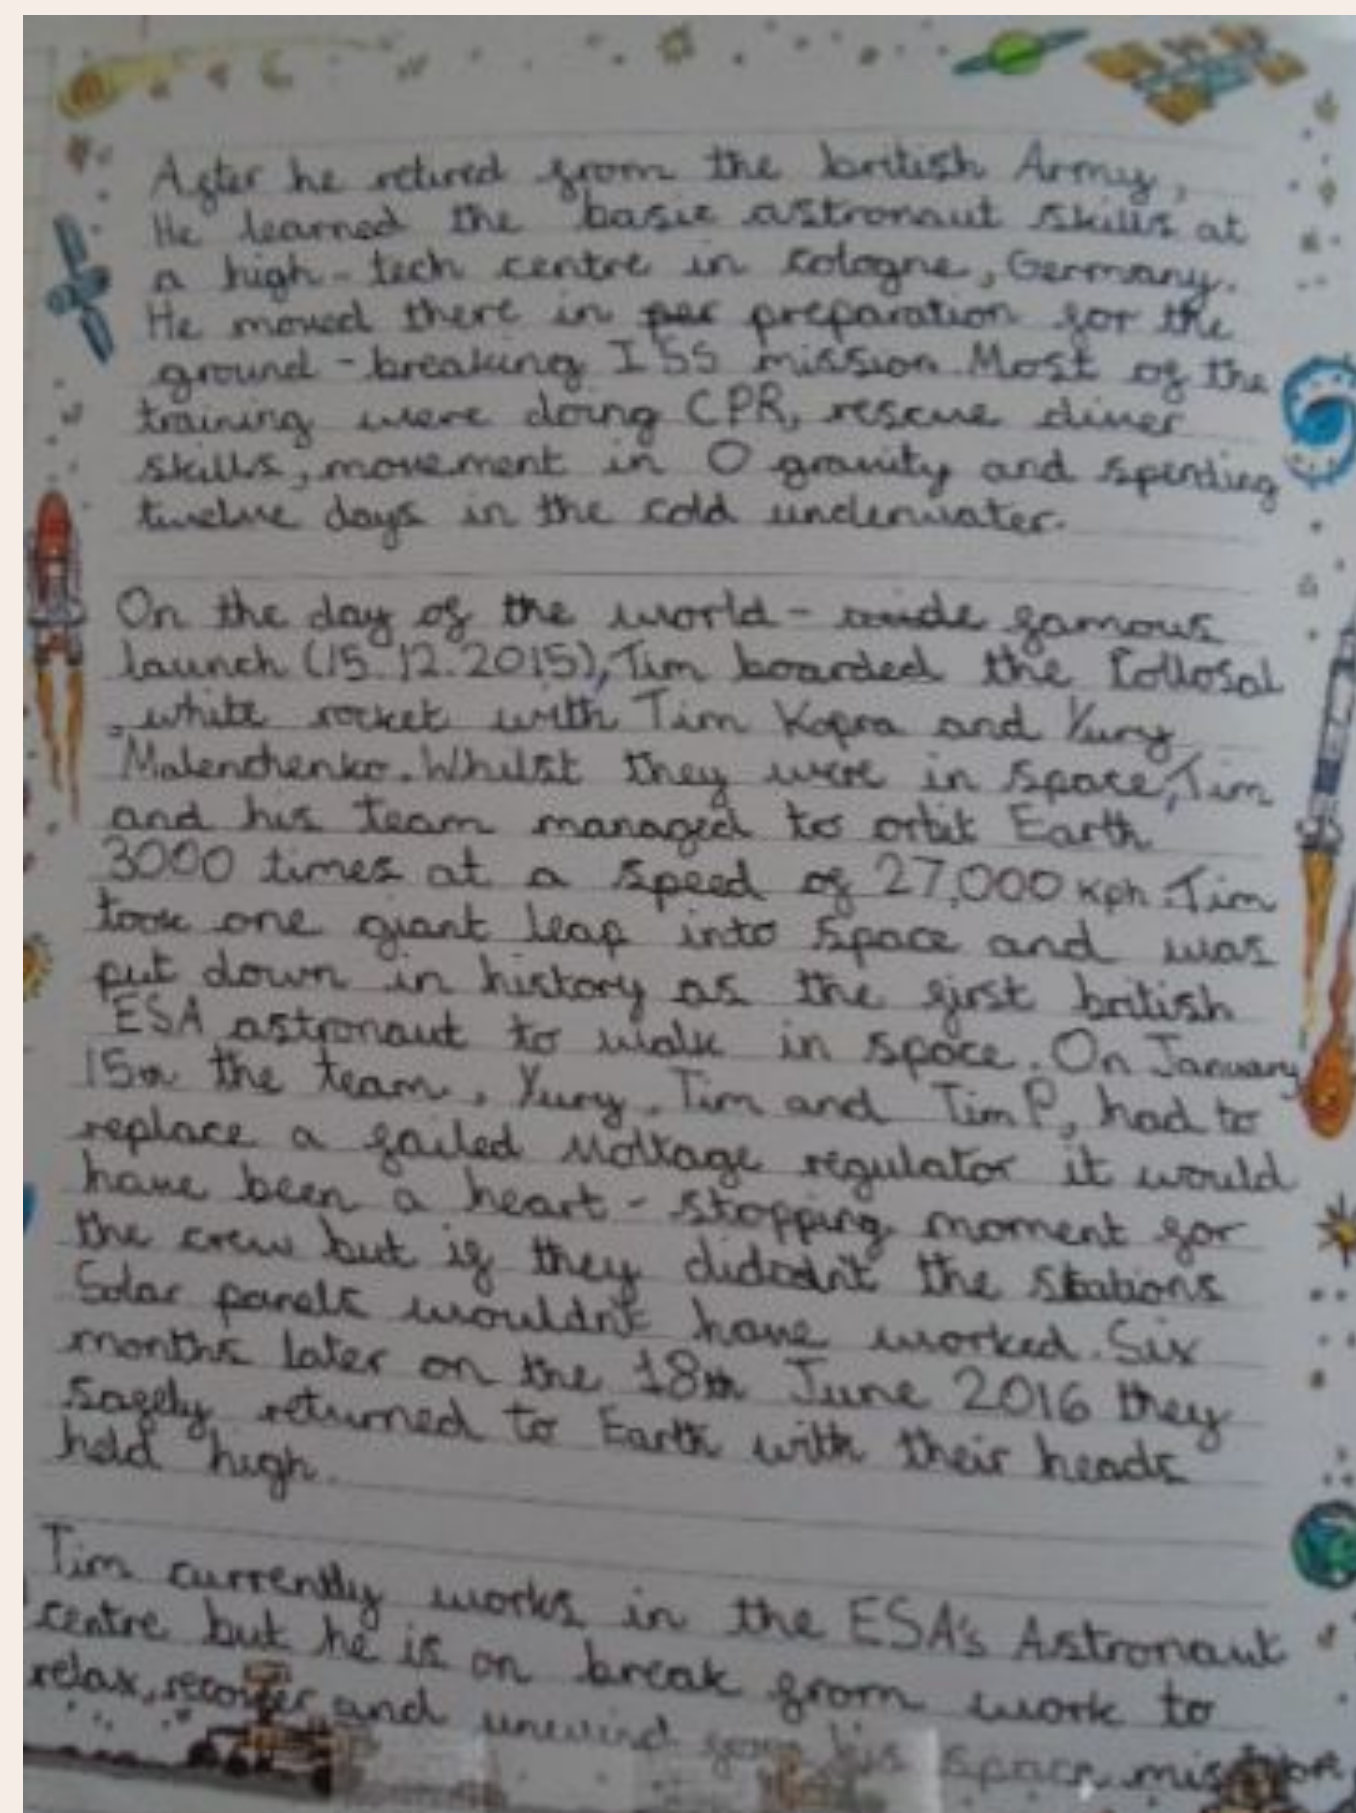 After he retired from the british Army,
He learned the basic astronaut skills at
a high-tech centre in cologne, Germany.
He moved there in per preparation for the
ground-breaking ISS mission. Most of the
training were doing CPR, rescue diver
skills, movement in 0 gravity and spending
twelve days in the cold underwater.
On the day of the world-wide famous
launch (15.12.2015), Tim boarded the Collosal
, white rocket with Tim Kopra and Yury
Malenchenko. Whilst they were in space, Tim
and his team managed to orbit Earth
3000 times at a speed of 27,000 kph. Tim
took one giant leap into space and was
put down in history as the first british
ESA astronaut to walk in space. On January
15th the team, Yury, Tim and Tim P, had to
replace a failed voltage regulator it would
have been a heart-stopping moment for
the crew but if they didodn't the stations
Solar panels wouldn't have worked. Six
months later on the 18th June 2016 they
safely returned to Earth with their heads
held high.
Tim currently works in the ESA's Astronaut
centre but he is on break from work to
relax, recover and unwind from his space mission